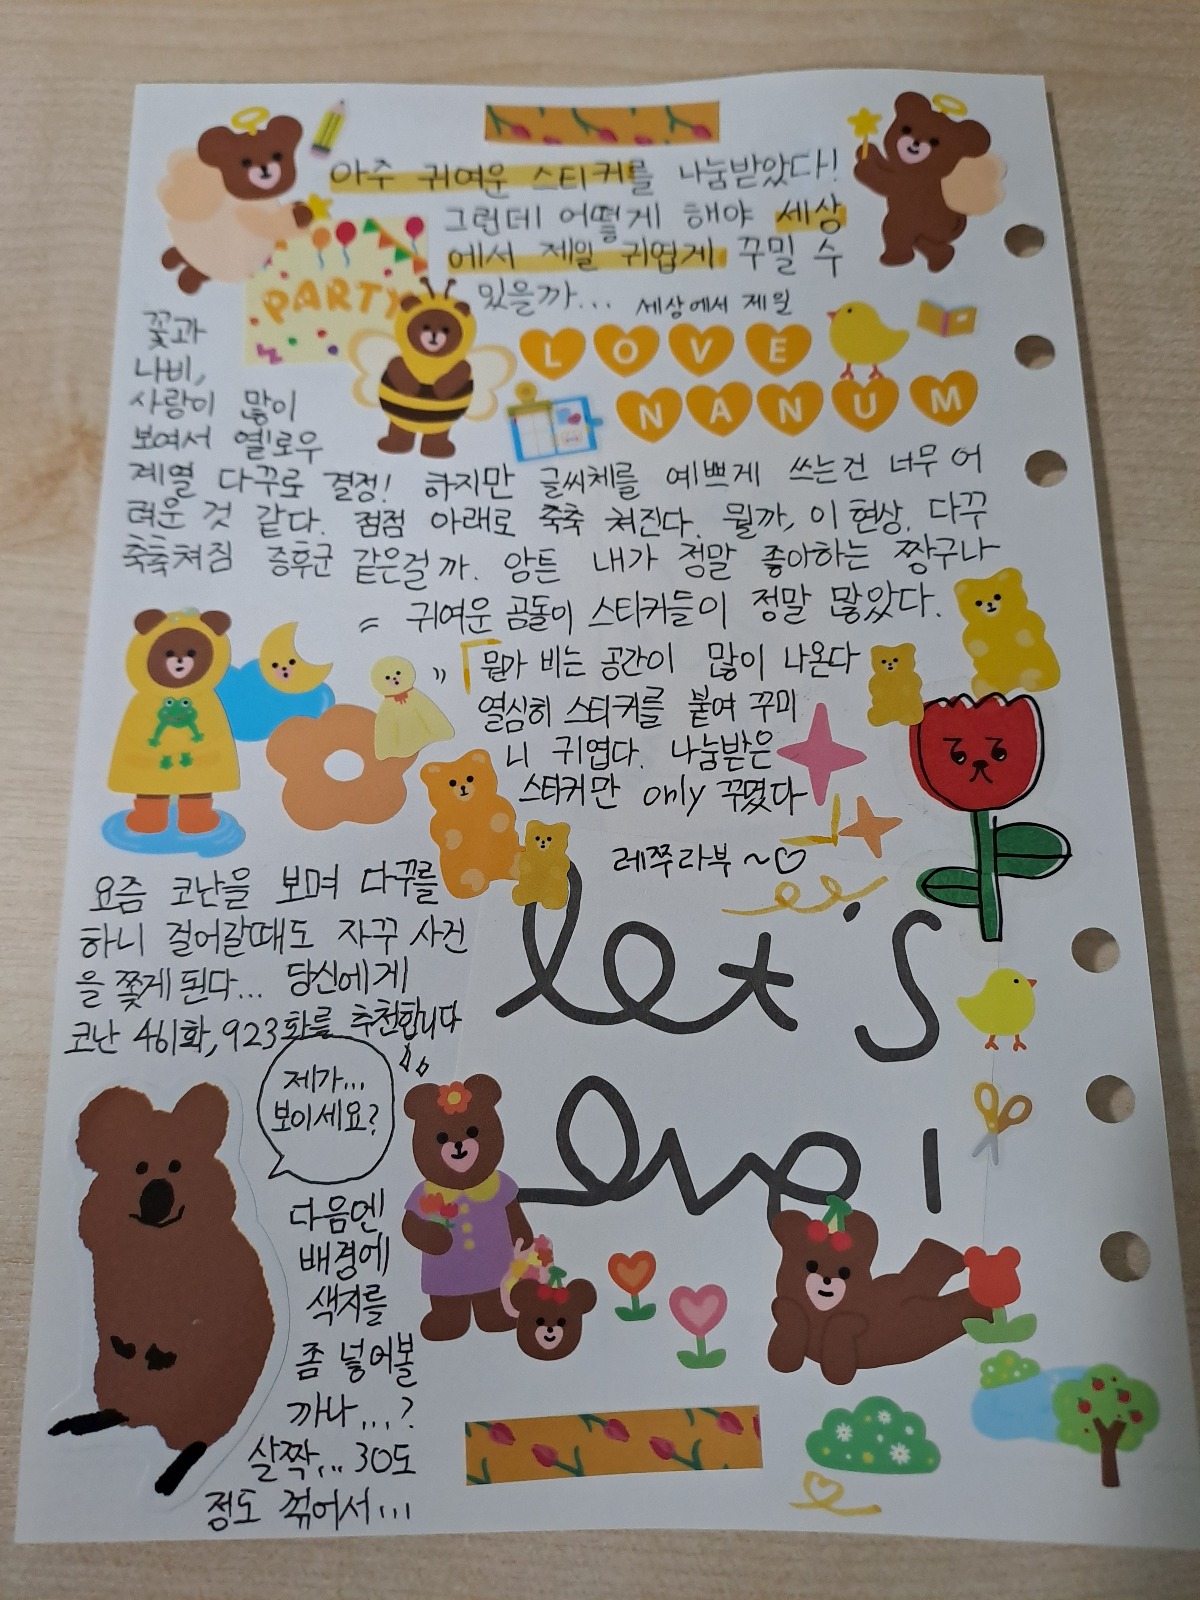 아주 귀여운 스티커를 나눔받았다!
그런데 어떻게 해야 세상
에서 제일 귀엽게 꾸밀 수
있을까...
세상에서 제일
PARTY
LOVE
NANUM
꽃과
나비,
사랑이 많이
보여서 옐로우
계열 다꾸로 결정! 하지만 글씨체를 예쁘게 쓰는건 너무 어
려운 것 같다. 점점 아래로 축축 쳐진다. 뭘까, 이 현상. 다꾸
축축쳐짐 증후군 같은걸까. 암튼 내가 정말 좋아하는 짱구나
귀여운 곰돌이 스티커들이 정말 많았다.
뭔가 비는 공간이 많이 나온다
열심히 스티커를 붙여 꾸미
니 귀엽다. 나눔받은
스티커만 only 꾸몄다
레쭈라부~♡
요즘 코난을 보며 다꾸를
하니 걸어갈때도 자꾸 사건
을 쫓게 된다... 당신에게
코난 461화, 923화를 추천합니다
let's
love!
제가...
보이세요?
다음엔
배경에
색지를
좀 넣어볼
까나...?
살짝... 30도
정도 꺾어서...